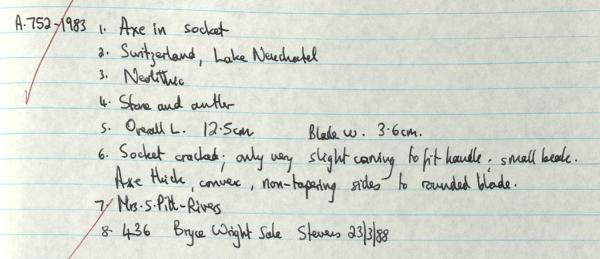 A.752-1983 1. Axe in socket
2. Switzerland, Lake Neuchatel
3. Neolithic
4. Stone and antler
5. Overall L. 12.5cm Blade w. 3.6cm.
6. Socket cracked; only very slight carving to fit handle; small beak.
Axe thick, convex, non-tapering sides to rounded blade.
7. Mrs. S. Pitt-Rivers
8. 436 Bryce Wright Sale Stevens 23/3/88